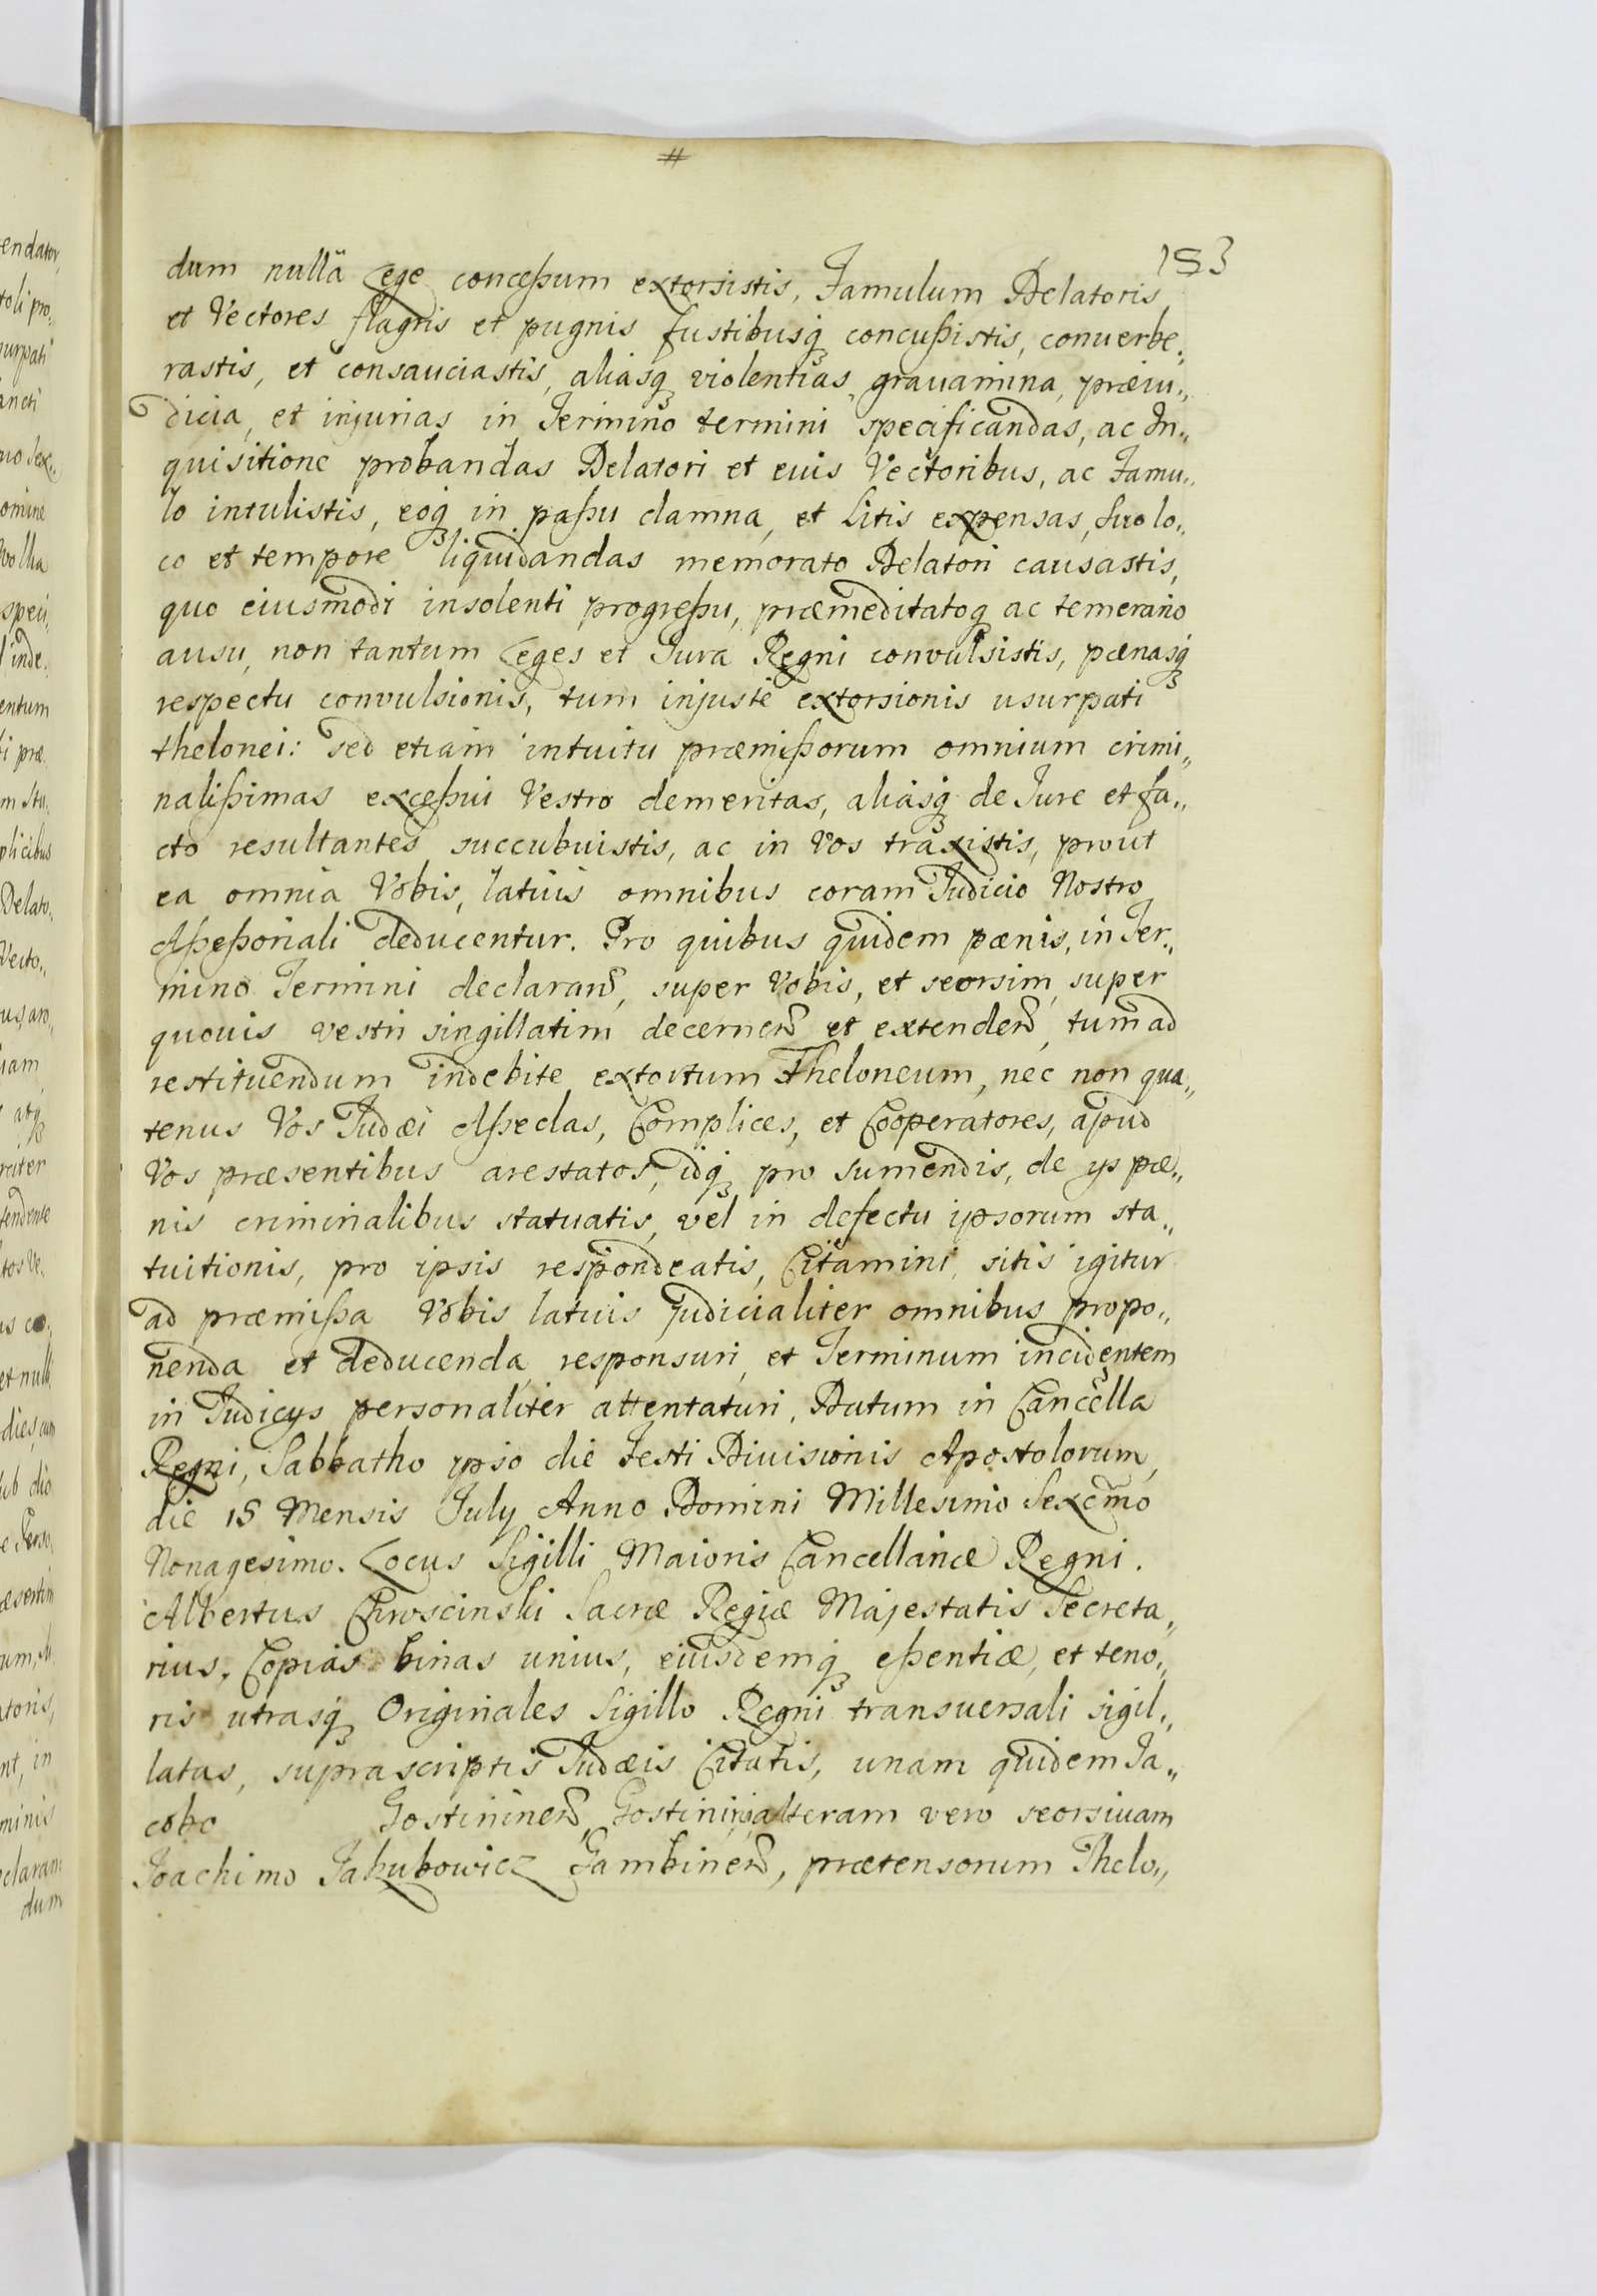 #
153
dum nullâ Lege conceßum extorsistis, Famulum Delatoris
et Vectores flagris et pugnis fustibusq́ concußistis, conuerbe„
rastis, et consauciastis, aliasq́ violentias, grauamina, præiu„
dicia, et injurias in Termino termini specificandas, ac In„
quisitione probandas Delatori et euis Vectoribus, ac Famu„
lo intulistis, eoq́ in paßu damna, et Litis expensas, suo lo„
co et tempore liquidandas memorato Delatori causastis,
quo eiusmodi insolenti progreßu, præmeditatoq́ ac temerario
ausu, non tantum Leges et Jura Regni convulsistis, pænasq́
respectu convulsionis, tum injustè extorsionis usurpati
thelonei: sed etiam intuitu præmißorum omnium crimi„
nalißimas exceßui Vestro demeritas, aliasq́ de Jure et fa„
cto resultantes succubuistis, ac in Vos traxistis, prout
ea omnia Vobis, latius omnibus coram Judicio Nostro
Aßeßoriali deducentur. Pro quibus quidem pænis, in Ter„
mino Termini declaran̄, super Vobis, et seorsim super
quouis vestri singillatim decernen̄ et extenden̄, tum ad
restituendum indebite extortum Theloneum, nec non qua„
tenus Vos Judæi Aßeclas, Complices, et Cooperatores, apud
Vos præsentibus arestatos, idq́ pro sumendis, de ijs pæ„
nis criminalibus statuatis, vel in defectu ipsorum sta„
tuitionis, pro ipsis respondeatis, Citamini, sitis igitur
ad præmißa Vobis latius judicialiter omnibus propo„
nenda et deducenda responsuri, et Terminum incidentem
in Judicijs personaliter attentaturi. Datum in Cancella
Regni, Sabbatho ipso die Festi Diuisionis Apostolorum,
die 15 Mensis July Anno Domini Millesimo Sexcm̄o
Nonagesimo. Locus Sigilli Maioris Cancellariæ Regni.
Albertus Chroscinski Sacræ Regiæ Majestatis Secreta„
rius. Copias binas unius, eiusdemq́ eßentiæ, et teno„
ris utrasq́ Originales Sigillo Regni transuersali sigil„
latas, suprascriptis Judæis Citatis, unam quidem Ja„
cobo Gostininen̄, Gostinini, alteram vero seorsiuam
Joachimo Jakubowicz Gambinen̄, prætensorum Thelo„